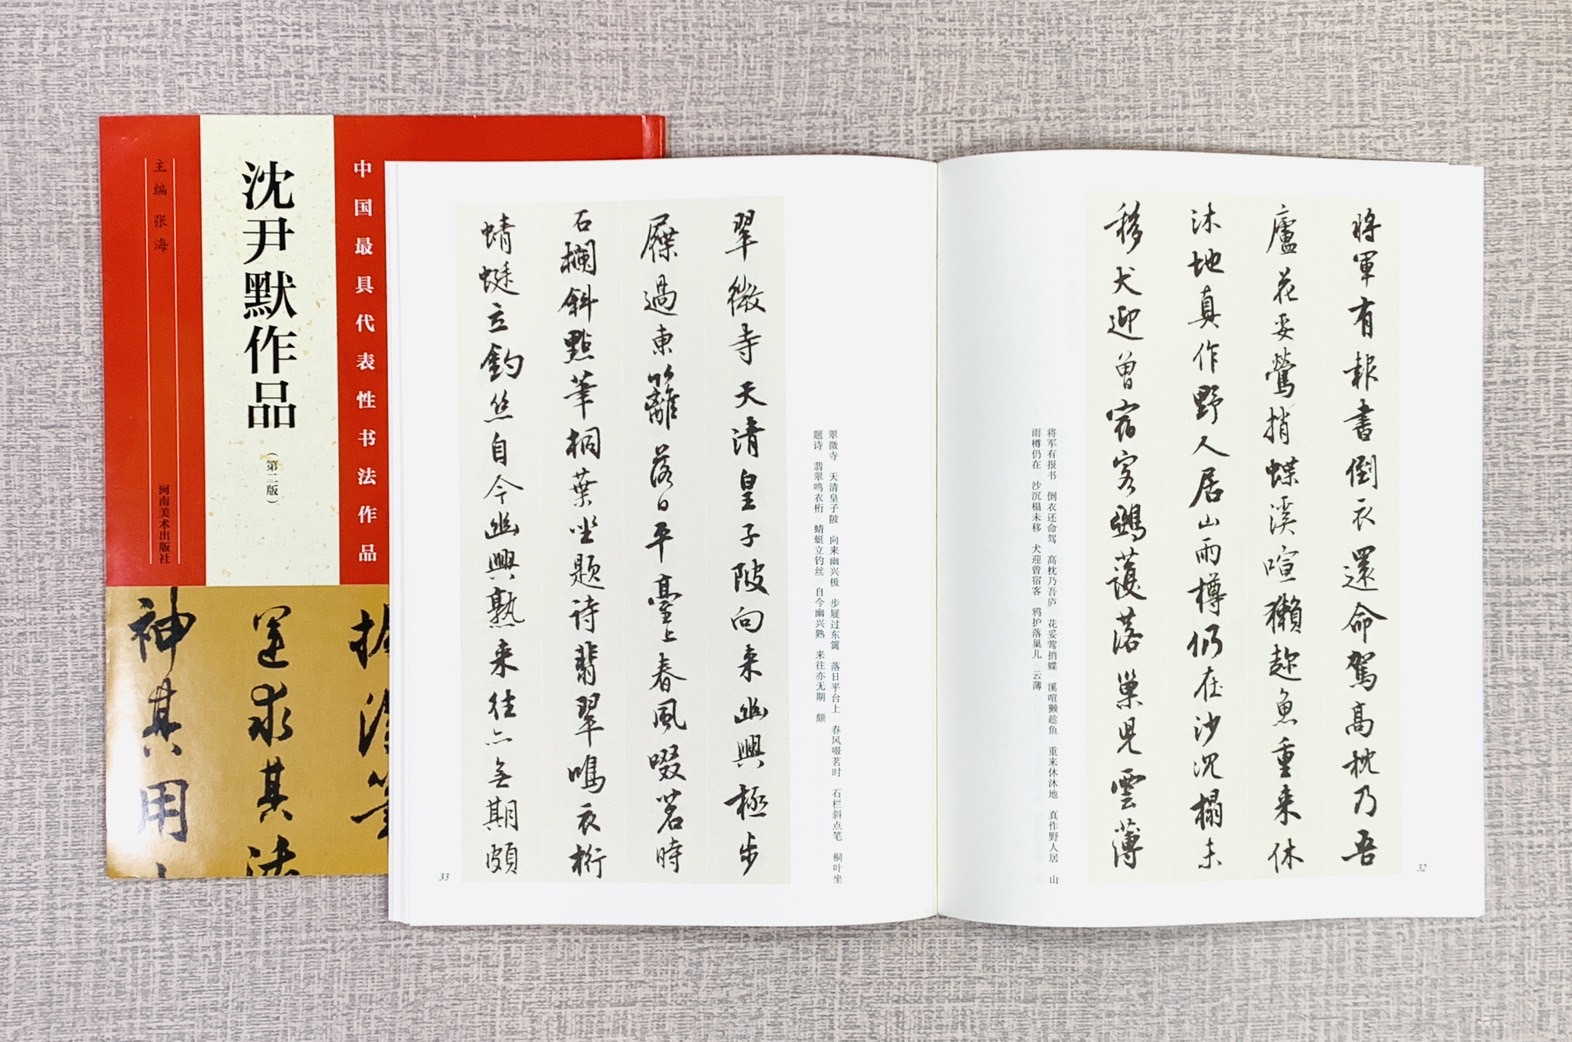 中国最具代表性书法作品
沈尹默作品
（第二版）
主编 张海
河南美术出版社
神其用
运求其法
將軍有報書倒衣還命駕高枕乃吾
廬花妥鶯捎蝶溪喧獺趂魚重来休
沐地真作野人居山雨樽仍在沙沉榻未
移犬迎曾宿客鴉護落巢兒雲薄
将军有报书 倒衣还命驾 高枕乃吾庐 花妥莺捎蝶 溪喧獭趁鱼 重来休沐地 真作野人居 山
雨樽仍在 沙沉榻未移 犬迎曾宿客 鸦护落巢儿 云薄
32
翠微寺天清皇子陂向来幽興極步
屧過東籬落日平臺上春風啜茗時
石欄斜點筆桐葉坐題詩翡翠鳴衣桁
蜻蜓立釣丝自今幽興熟来往亦無期頗
翠微寺 天清皇子陂 向来幽兴极 步屧过东篱 落日平台上 春风啜茗时 石栏斜点笔 桐叶坐
题诗 翡翠鸣衣桁 蜻蜓立钓丝 自今幽兴熟 来往亦无期 颇
33